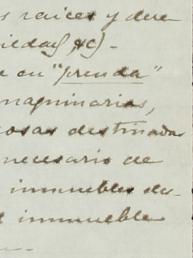 raices y dere
en "prenda"
maquinarias,
cosas destinadas
necesario de
inmuebles des-
inmueble